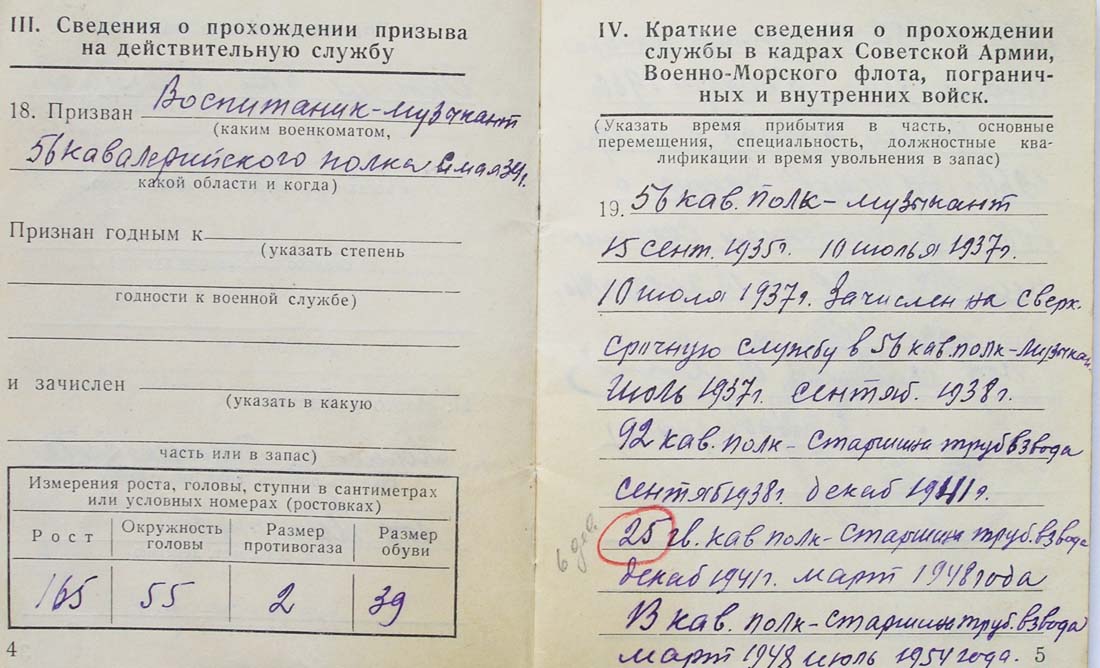 III. Сведения о прохождении призыва
на действительную службу
18. Призван Воспитаник-музыкант
(каким военкоматом,
56 кавалерийского полка с мая
какой области и когда)
Признан годным к
(указать степень
годности к военной службе)
и зачислен
(указать в какую
часть или в запас)
Измерения роста, головы, ступни в сантиметрах
или условных номерах (ростовках)
Рост Окружность головы Размер противогаза Размер обуви
165 55 2 39
4
IV. Краткие сведения о прохождении
службы в кадрах Советской Армии,
Военно-Морского флота, погранич-
ных и внутренних войск.
(Указать время прибытия в часть, основные
перемещения, специальность, должностные ква-
лификации и время увольнения в запас)
19. 56 кав. полк - музыкант
15 сент. 1935г. 10 июлья 1937г.
10 июля 1937г. Зачислен на сверх.
срочную службу в 56 кав. полк-музыкан
Июль 1937г. сентяб. 1938г.
92 кав. полк - Старшина труб взвода
сентяб 1938г. декаб 1941г.
25 гв. кав полк - Старшина труб. взвода
декаб 1941г. март 1948 года
кав. полк - старшина труб. взвода
март 1948 июль 1954 года.
5